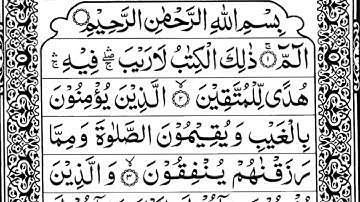 بِسْمِ اللهِ الرَّحْمٰنِ الرَّحِيْمِ
الٓمّٓ ۚ﴿۱﴾ ذٰلِكَ الْكِتٰبُ لَا رَيْبَ ۛۖ فِيْهِ ۛۚ
هُدًى لِّلْمُتَّقِيْنَ ۙ﴿۲﴾ الَّذِيْنَ يُؤْمِنُوْنَ
بِالْغَيْبِ وَ يُقِيْمُوْنَ الصَّلٰوةَ وَ مِمَّا
رَزَقْنٰهُمْ يُنْفِقُوْنَ ۙ﴿۳﴾ وَ الَّذِيْنَ